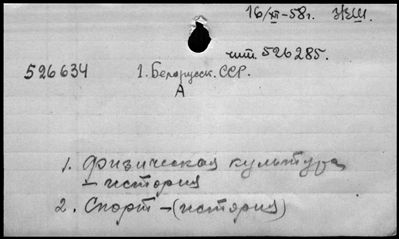 16/XI-58г. НЕШ.
чит. 526285.
526634 1. Белорусск. ССР.
А
1. Физическая культура
- история
2. Спорт - (история)